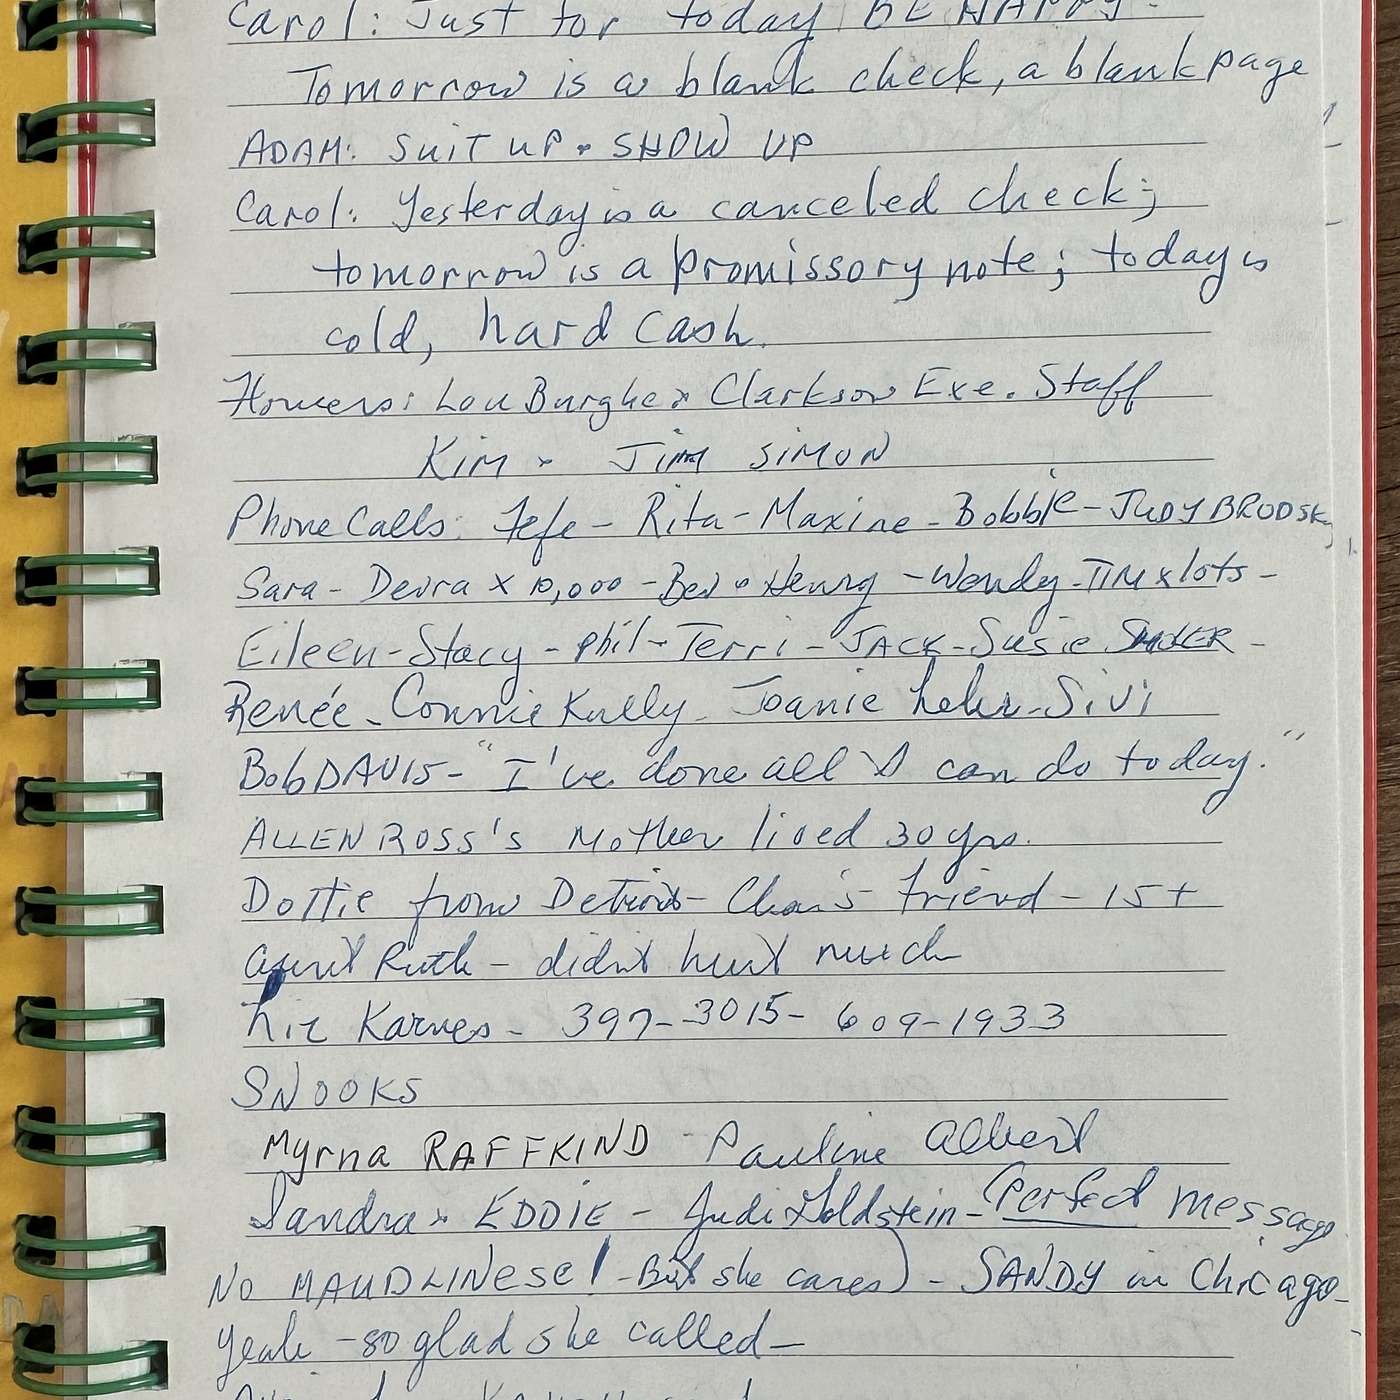 Carol: Just for today BE HAPPY.
Tomorrow is a blank check, a blank page
ADAM: SUIT UP + SHOW UP
Carol: Yesterday is a canceled check;
tomorrow is a promissory note; today is
cold, hard cash.
Flowers: Lou Burghe + Clarkson Exe. Staff
KIM + JIM SIMON
Phone Calls: Fefe - Rita - Maxine - Bobbie - JUDY BRODSKY
Sara - Devra x 10,000 - Bev + Henry - Wendy - TIM x lots -
Eileen - Stacy - Phil - Terri - JACK - Susie
Renée - Connie Kully - Joanie Lehr - Sivi
Bob DAVIS - "I've done all I can do today."
ALLEN ROSS's Mother lived 30 yrs.
Dottie from Detroit - friend - 15+
Aunt Ruth - didn't hurt much
Karnes - 397-3015 - 609-1933
SNOOKS
Myrna RAFFKIND - Pauline Albert
Sandra + EDDIE - Judi Goldstein - (Perfect message
NO MAUDLINESE! - But she cares) - SANDY in Chicago -
Yeah - so glad she called -